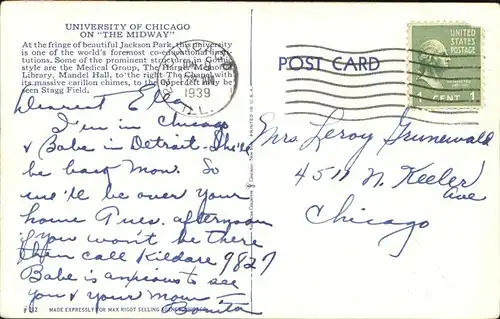 UNIVERSITY OF CHICAGO
ON "THE MIDWAY"
At the fringe of beautiful Jackson Park, this university
is one of the world's foremost co-educational insti-
tutions. Some of the prominent structures in Gothic
style are the Medical Group, The Harper Memorial
Library, Mandel Hall, to the right. The Chapel with
its massive carillon chimes, to the upper left may be
seen Stagg Field.
1939
ILL.
POST CARD
UNITED STATES
POSTAGE
1 CENT 1
Dearest Ella
I'm in Chicago
& Babe in Detroit. She'll
be back Mon. So
we'll be over your
home Tues. afternoon
if you won't be there
then call Kildare 9827
Babe is anxious to see
you & your Mom
Bonita
Mrs Leroy Grunewald
4511 N. Keeler
Ave
Chicago
MADE EXPRESSLY FOR MAX RIGOT SELLING